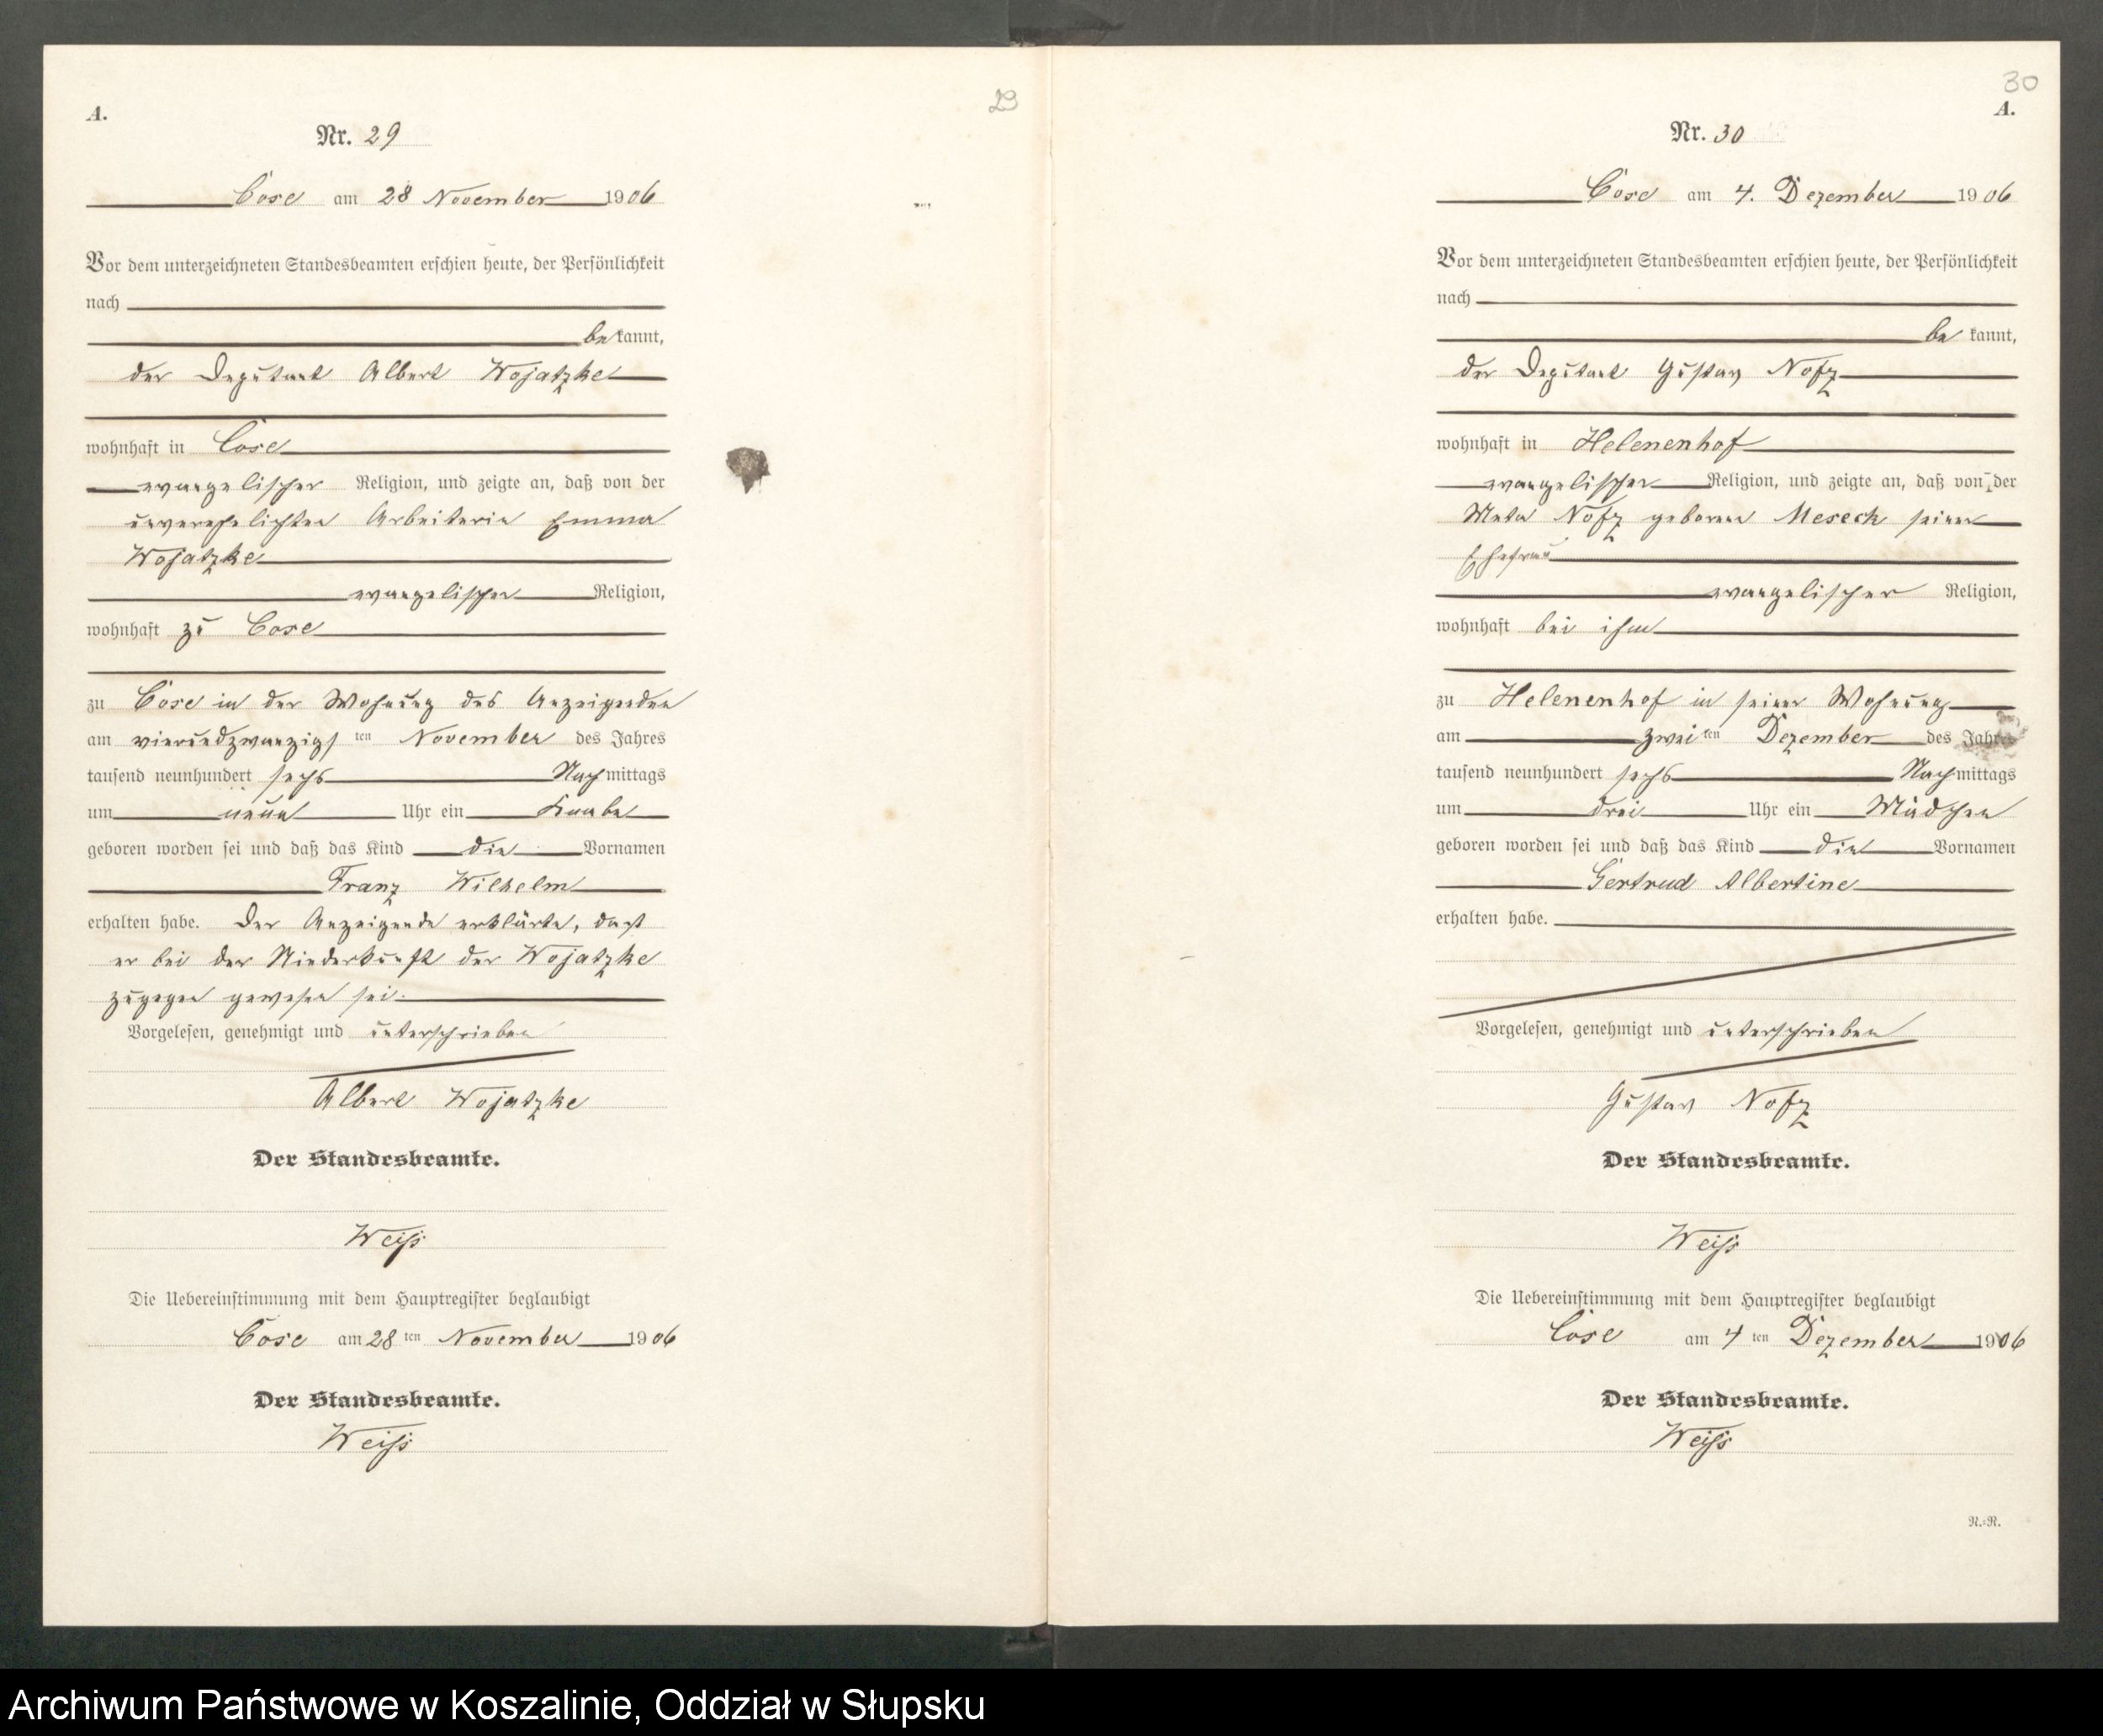 29
A.
Nr. 29
Cose am 28 November 1906
Vor dem unterzeichneten Standesbeamten erschien heute, der Persönlichkeit
nach
bekannt,
der Deputant Albert Wojatzke
wohnhaft in Cose
evangelischer Religion, und zeigte an, daß von der
unverehelichten Arbeiterin Emma
Wojatzke
evangelischer Religion,
wohnhaft zu Cose
zu Cose in der Wohnung des Anzeigenden
am vierundzwanzigsten November des Jahres
tausend neunhundert sechs Nachmittags
um neun Uhr ein Knabe
geboren worden sei und daß das Kind die Vornamen
Franz Wilhelm
erhalten habe. Der Anzeigende erklärte, dass
er bei der Niederkunft der Wojatzke
zugegen gewesen sei.
Vorgelesen, genehmigt und unterschrieben
Albert Wojatzke
Der Standesbeamte.
Weiss
Die Uebereinstimmung mit dem Hauptregister beglaubigt
Cose am 28 ten November 1906
Der Standesbeamte.
Weiss
30
A.
Nr. 30
Cose am 4. Dezember 1906
Vor dem unterzeichneten Standesbeamten erschien heute, der Persönlichkeit
nach
be kannt,
der Deputant Gustav Notz
wohnhaft in Helenenhof
evangelischer Religion, und zeigte an, daß von der
Meta Notz geborene Meseck seiner
Ehefrau
evangelischer Religion,
wohnhaft bei ihm
zu Helenenhof in seiner Wohnung
am zweiten Dezember des Jahres
tausend neunhundert sechs Nachmittags
um drei Uhr ein Mädchen
geboren worden sei und daß das Kind die Vornamen
Gertrud Albertine
erhalten habe.
Vorgelesen, genehmigt und unterschrieben
Gustav Notz
Der Standesbeamte.
Weiss
Die Uebereinstimmung mit dem Hauptregister beglaubigt
Cose am 4 ten Dezember 1906
Der Standesbeamte.
Weiss
N.=R.
Archiwum Państwowe w Koszalinie, Oddział w Słupsku